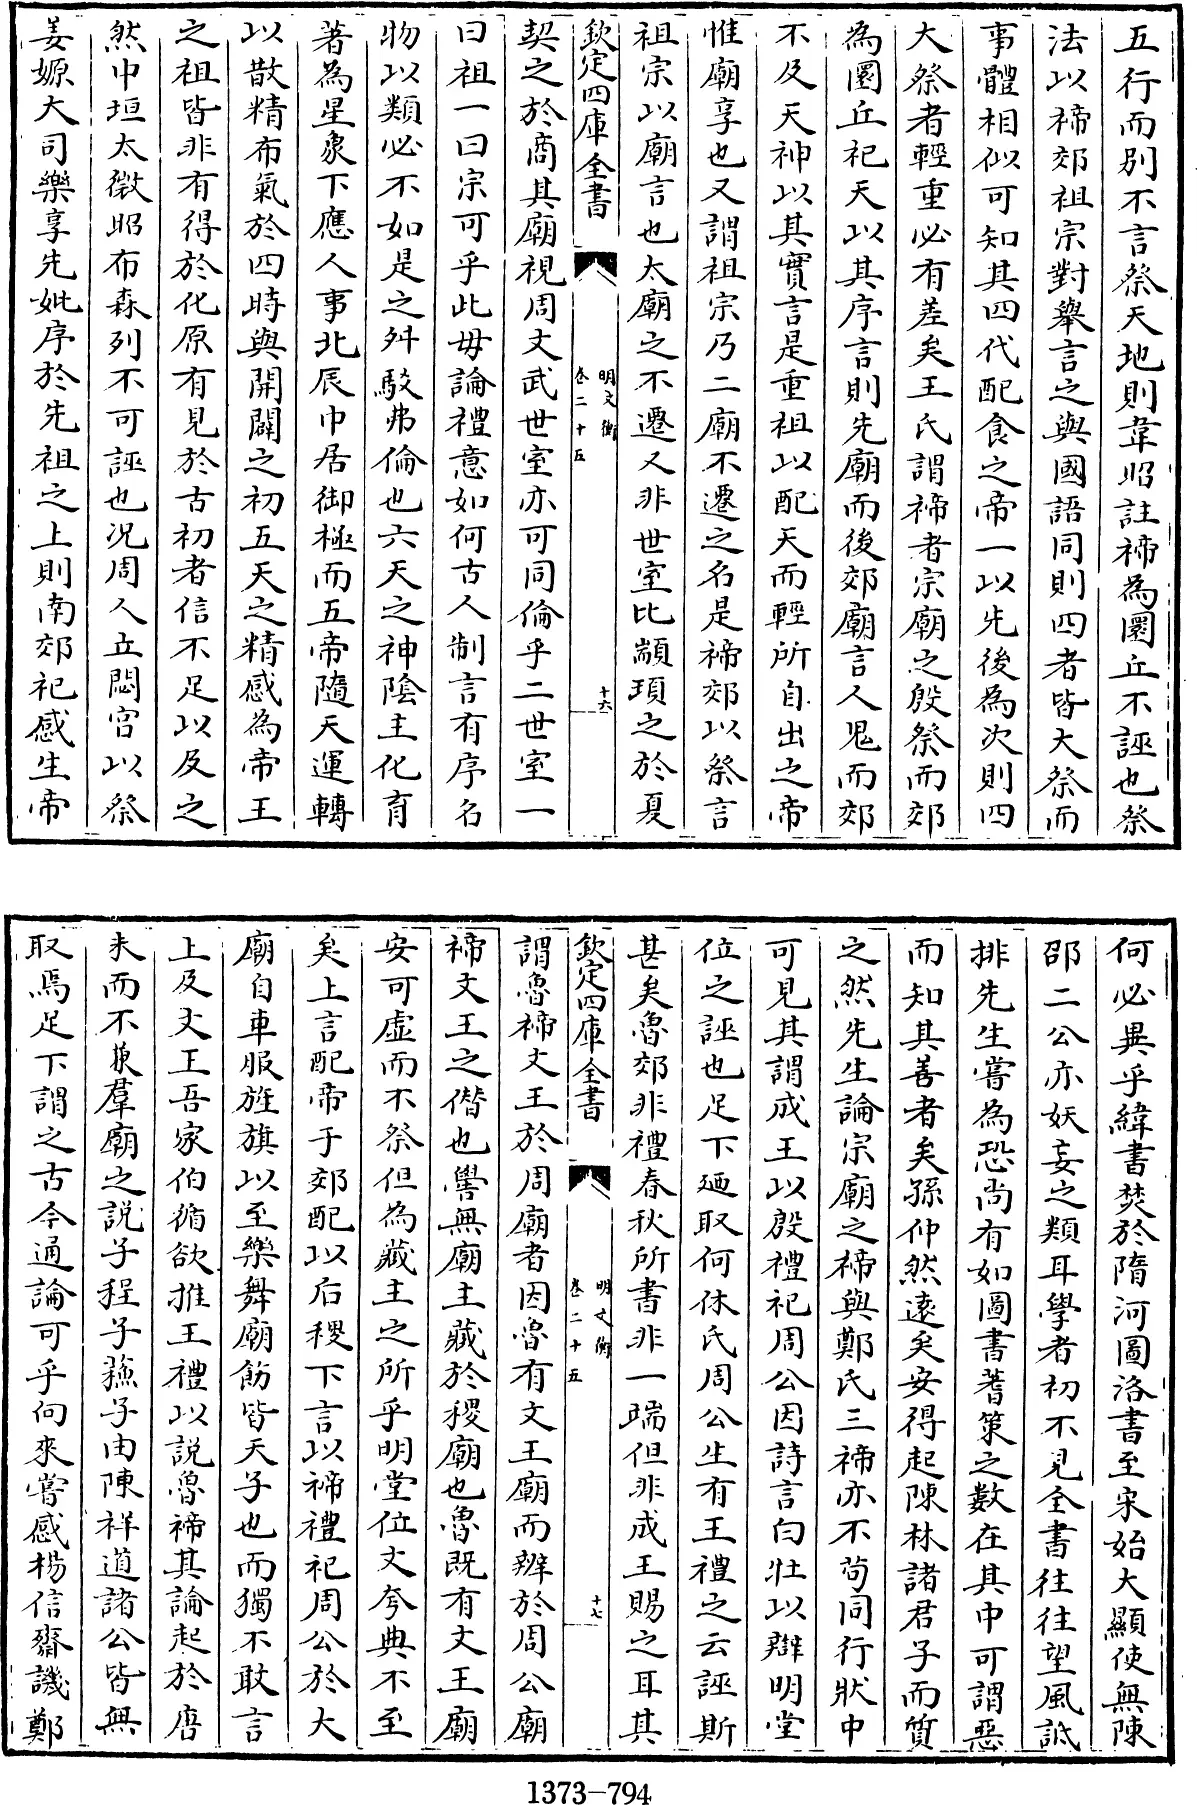 五行而别不言祭天地則韋昭註禘為圜丘不誣也祭
法以禘郊祖宗對舉言之與國語同則四者皆大祭而
事體相似可知其四代配食之帝一以先後為次則四
大祭者輕重必有差矣王氏謂禘者宗廟之殷祭而郊
為圜丘祀天以其序言則先廟而後郊廟言人鬼而郊
不及天神以其實言是重祖以配天而輕所自出之帝
惟廟享也又謂祖宗乃二廟不遷之名是禘郊以祭言
祖宗以廟言也太廟之不遷又非世室比顓頊之於夏
欽定四庫全書
明文衡
卷二十五
十六
契之於商其廟視周文武世室亦可同倫乎二世室一
曰祖一曰宗可乎此毋論禮意如何古人制言有序名
物以類必不如是之舛駁弗倫也六天之神陰主化育
著為星象下應人事北辰中居御極而五帝隨天運轉
以散精布氣於四時與開闢之初五天之精感為帝王
之祖皆非有得於化原有見於古初者信不足以及之
然中垣太微昭布森列不可誣也况周人立閟宫以祭
姜嫄大司樂享先妣序於先祖之上則南郊祀感生帝
何必異乎緯書焚於隋河圖洛書至宋始大顯使無陳
邵二公亦妖妄之類耳學者初不見全書往往望風詆
排先生嘗為恐尚有如圖書蓍策之數在其中可謂惡
而知其善者矣孫仲然遠矣安得起陳林諸君子而質
之然先生論宗廟之禘與鄭氏三禘亦不苟同行狀中
可見其謂成王以殷禮祀周公因詩言白牡以辯明堂
位之誣也足下廼取何休氏周公生有王禮之云誣斯
甚矣魯郊非禮春秋所書非一端但非成王賜之耳其
欽定四庫全書
明文衡
卷二十五
十七
謂魯禘文王於周廟者因魯有文王廟而辨於周公廟
禘文王之僭也嚳無廟主藏於稷廟也魯既有文王廟
安可虛而不祭但為藏主之所乎明堂位文夸典不至
矣上言配帝于郊配以后稷下言以禘禮祀周公於大
廟自車服旌旗以至樂舞廟飭皆天子也而獨不敢言
上及文王吾家伯循欲推王禮以説魯禘其論起於唐
末而不兼羣廟之説子程子蘓子由陳祥道諸公皆無
取焉足下謂之古今通論可乎向來嘗感楊信齋譏鄭
1373-794